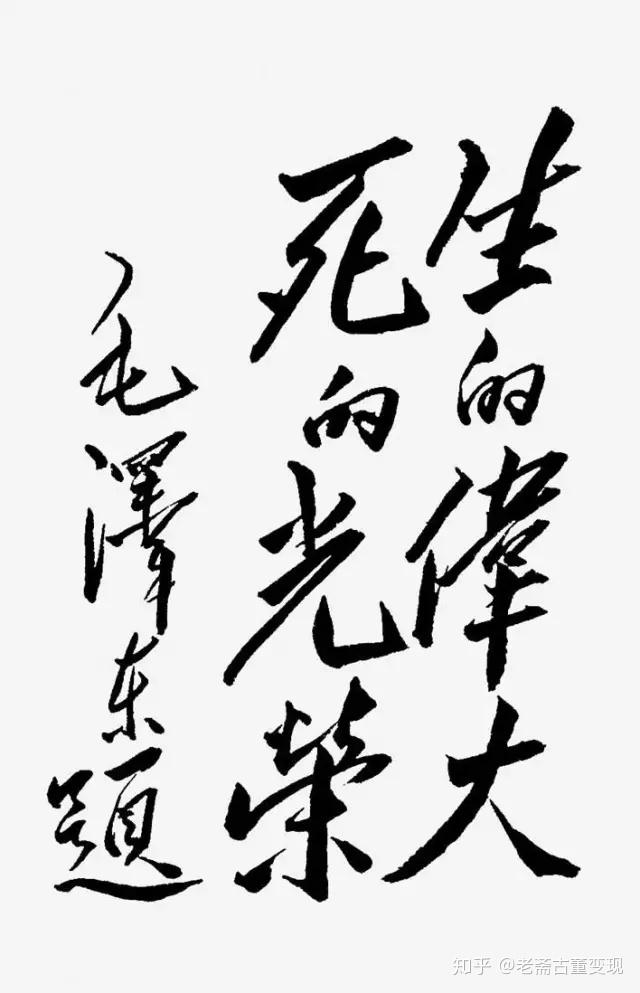 生的偉大
死的光榮
毛澤东題
知乎 @老斋古董变现